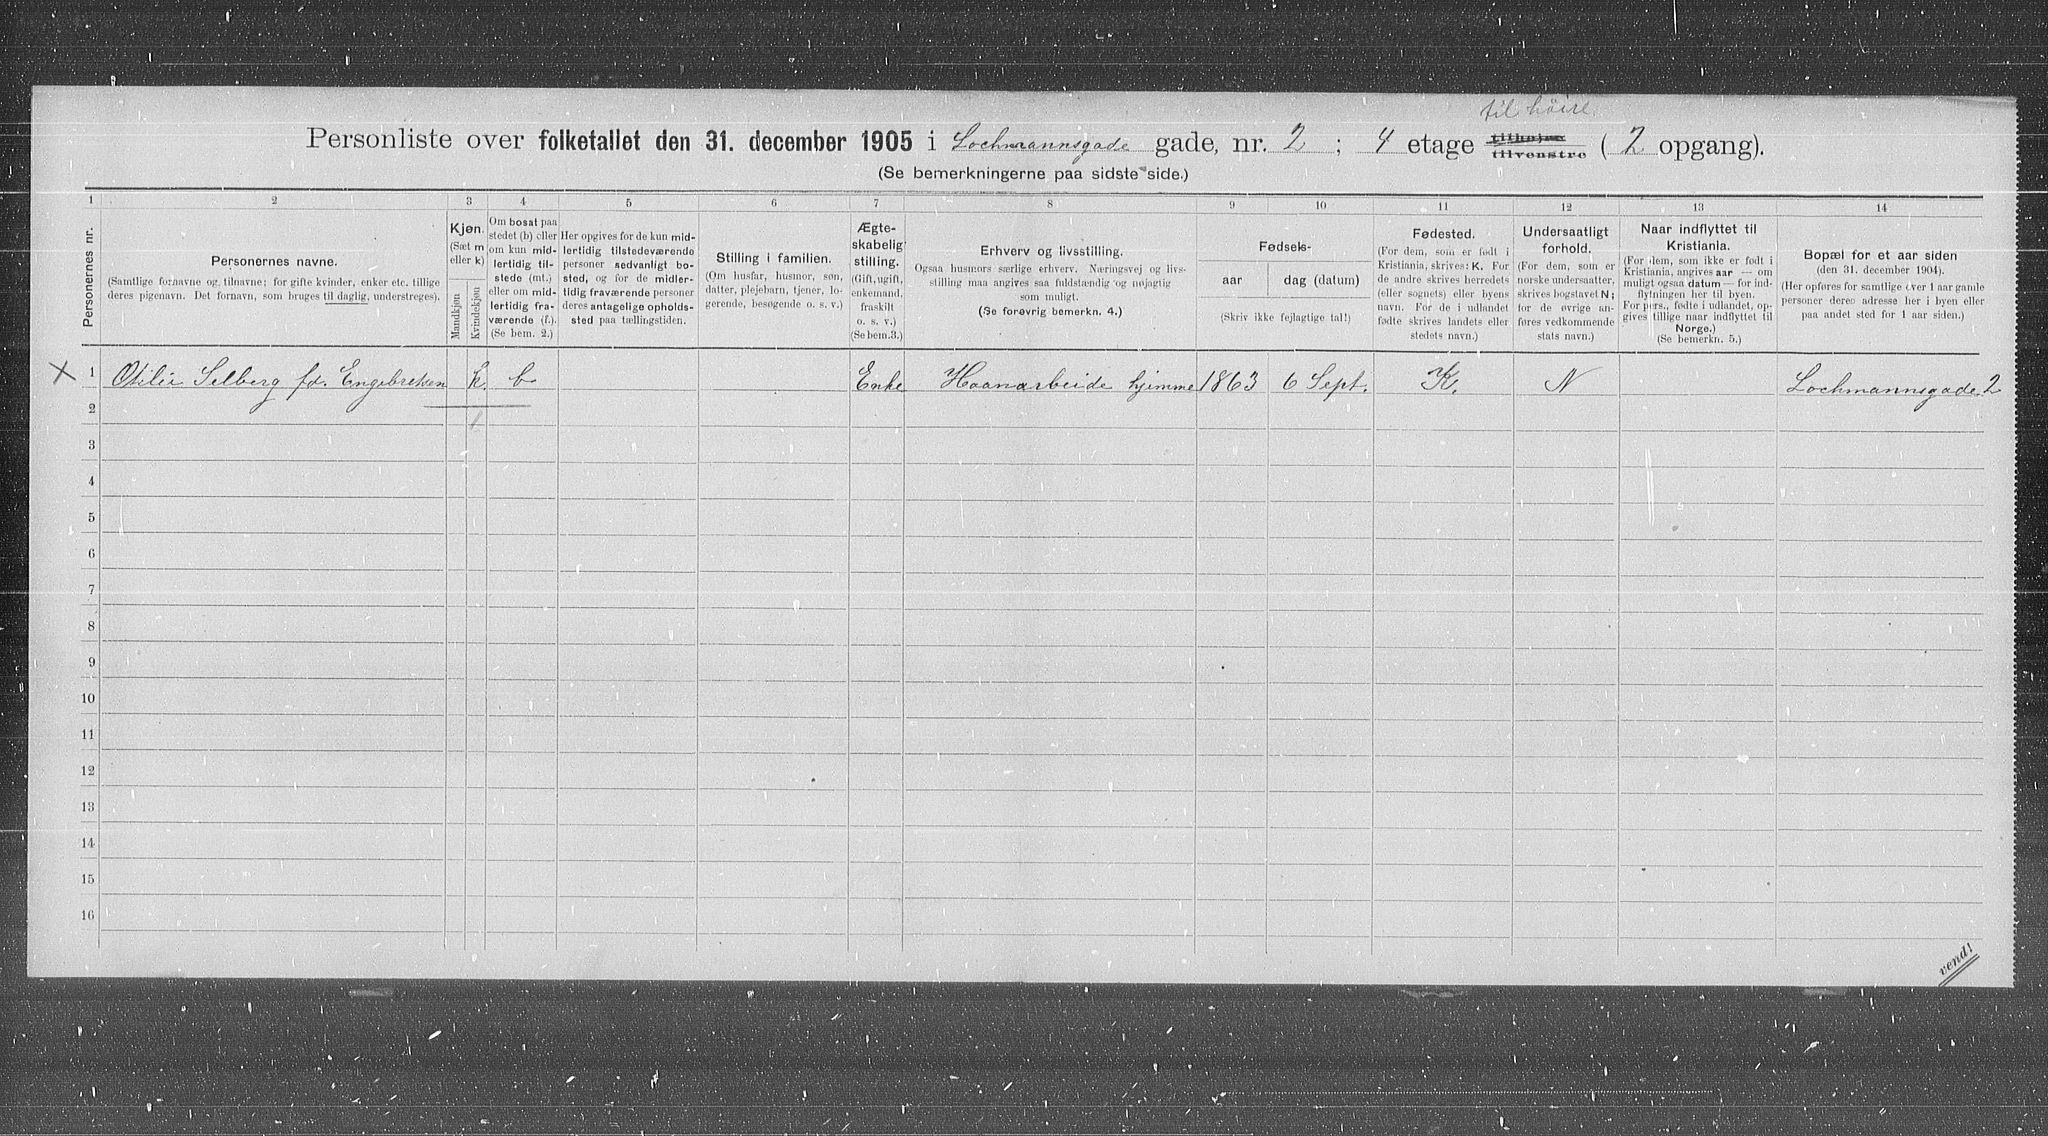 til höire
Personliste over folketallet den 31. december 1905 i Lochmannsgade gade, nr. 2 ; 4 etage tilhøjre tilvenstre ( 2 opgang).
(Se bemerkningerne paa sidste side.)
1 2 3 4 5 6 7 8 9 10 11 12 13 14
Personernes nr.
Personernes navne.
(Samtlige fornavne og tilnavne; for gifte kvinder, enker etc. tillige
deres pigenavn. Det fornavn, som bruges til daglig, understreges).
Kjøn.
(Sæt m
eller k)
Mandkjøn
Kvindekjøn
Om bosat paa
stedet (b) eller
om kun mid-
lertidig til-
stede (mt.)
eller om mid-
lertidig fra-
værende (f.).
(Se bem. 2.)
Her opgives for de kun mid-
lertidig tilstedeværende
personer sedvanligt bo-
sted, og for de midler-
tidig fraværende personer
deres antagelige opholds-
sted paa tællingstiden.
Stilling i familien.
(Om husfar, husmor, søn,
datter, plejebarn, tjener, lo-
gerende, besøgende o. s. v.)
Ægte-
skabelig
stilling.
(Gift, ugift,
enkemand,
fraskilt
o. s. v.)
(Se bem. 3.)
Erhverv og livsstilling.
Ogsaa husmors særlige erhverv. Næringsvej og livs-
stilling maa angives saa fuldstændig og nøjagtig
som muligt.
(Se forøvrig bemerkn. 4.)
Fødsels-
aar
dag (datum)
(Skriv ikke fejlagtige tal!)
Fødested.
(For dem, som er født i
Kristiania, skrives: K. For
de andre skrives herredets
(eller sognets) eller byens
navn. For de i udlandet
fødte skrives landets eller
stedets navn.)
Undersaatligt
forhold.
(For dem, som er
norske undersaatter,
skrives bogstavet N;
for de øvrige an-
føres vedkommende
stats navn.)
Naar indflyttet til
Kristiania.
(For dem, som ikke er født i
Kristiania, angives aar — om
muligt ogsaa datum — for ind-
flytningen her til byen.
For pers., fødte i udlandet, op-
gives tillige naar indflyttet til
Norge.)
(Se bemerkn. 5.)
Bopæl for et aar siden
(den 31. december 1904).
(Her opføres for samtlige over 1 aar gamle
personer deres adresse her i byen eller
paa andet sted for 1 aar siden.)
X 1 Otilie Selberg fd. Engebretsen k. b Enke Haanarbeide hjemme 1863 6 Sept. K. N Lochmannsgade 2
2
3
4
5
6
7
8
9
10
11
12
13
14
15
16
vend!